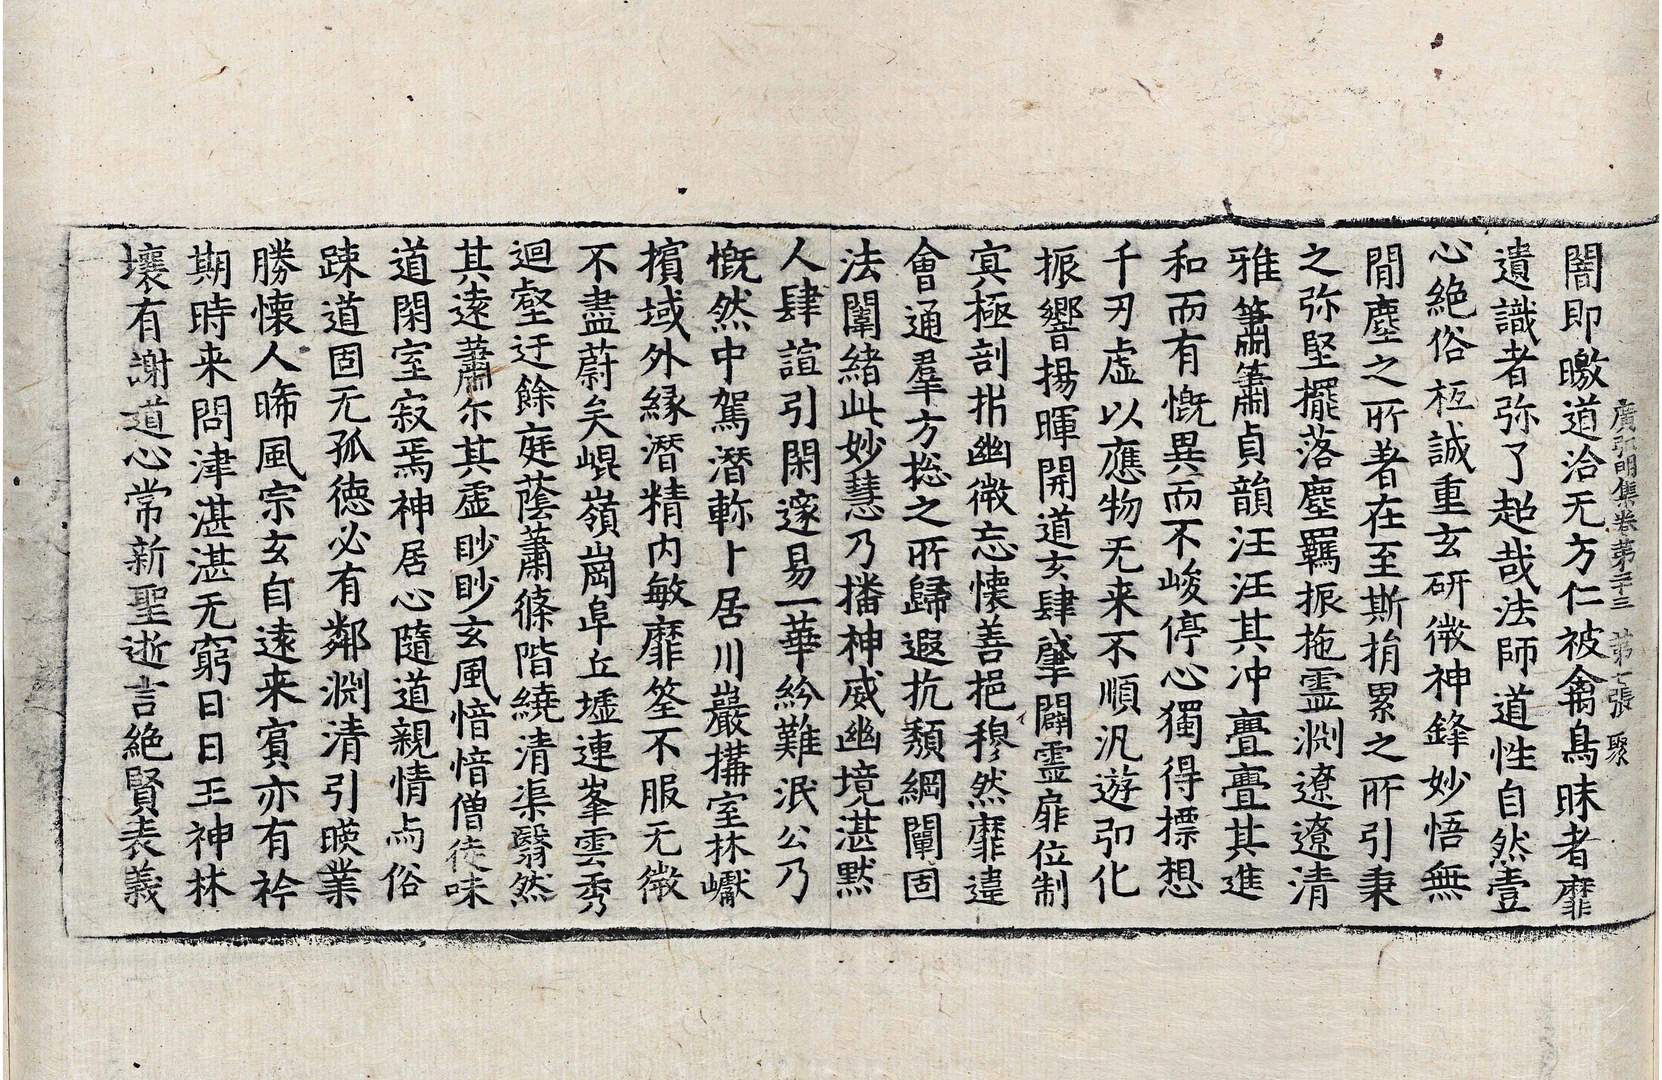 廣弘明集卷第二十三 第七張 聚
闇即曒道洽无方仁被禽鳥昧者靡
遺識者弥了超哉法師道性自然壹
心絶俗栢誠重玄研微神鋒妙悟無
間塵之所者在至斯捐累之所引秉
之弥堅擺落塵羈振拖霊渕遼遼清
雅簫簫貞韻汪汪其冲亹亹其進
和而有慨異而不峻停心獨得摽想
千刃虚以應物无来不順汎遊卬化
振響揚暉開道玄肆肇闢霊扉位制
㝠極剖㭊幽微忘懐善挹穆然靡違
會通羣方揔之所歸遐抗頽綱闡固
法闈緒此妙慧乃播神威幽境湛黙
人肆諠引閑邃易一華紛難泯公乃
慨然中駕潜軫卜居川巖搆室林巘
擯域外縁潜精内敏靡筌不服无微
不盡蔚矣崐嶺崗阜丘墟連峯雲秀
迴壑迂餘庭蔭蕭篠階繞清渠翳然
其逺蕭尒其虚眇眇玄風愔愔僧徒味
道閑室寂焉神居心隨道親情与俗
踈道固无孤徳必有鄰渕清引暎業
勝懐人晞風宗玄自逺来賔亦有衿
期時来問津湛湛无窮日日王神林
壞有謝道心常新聖逝言絶賢表義